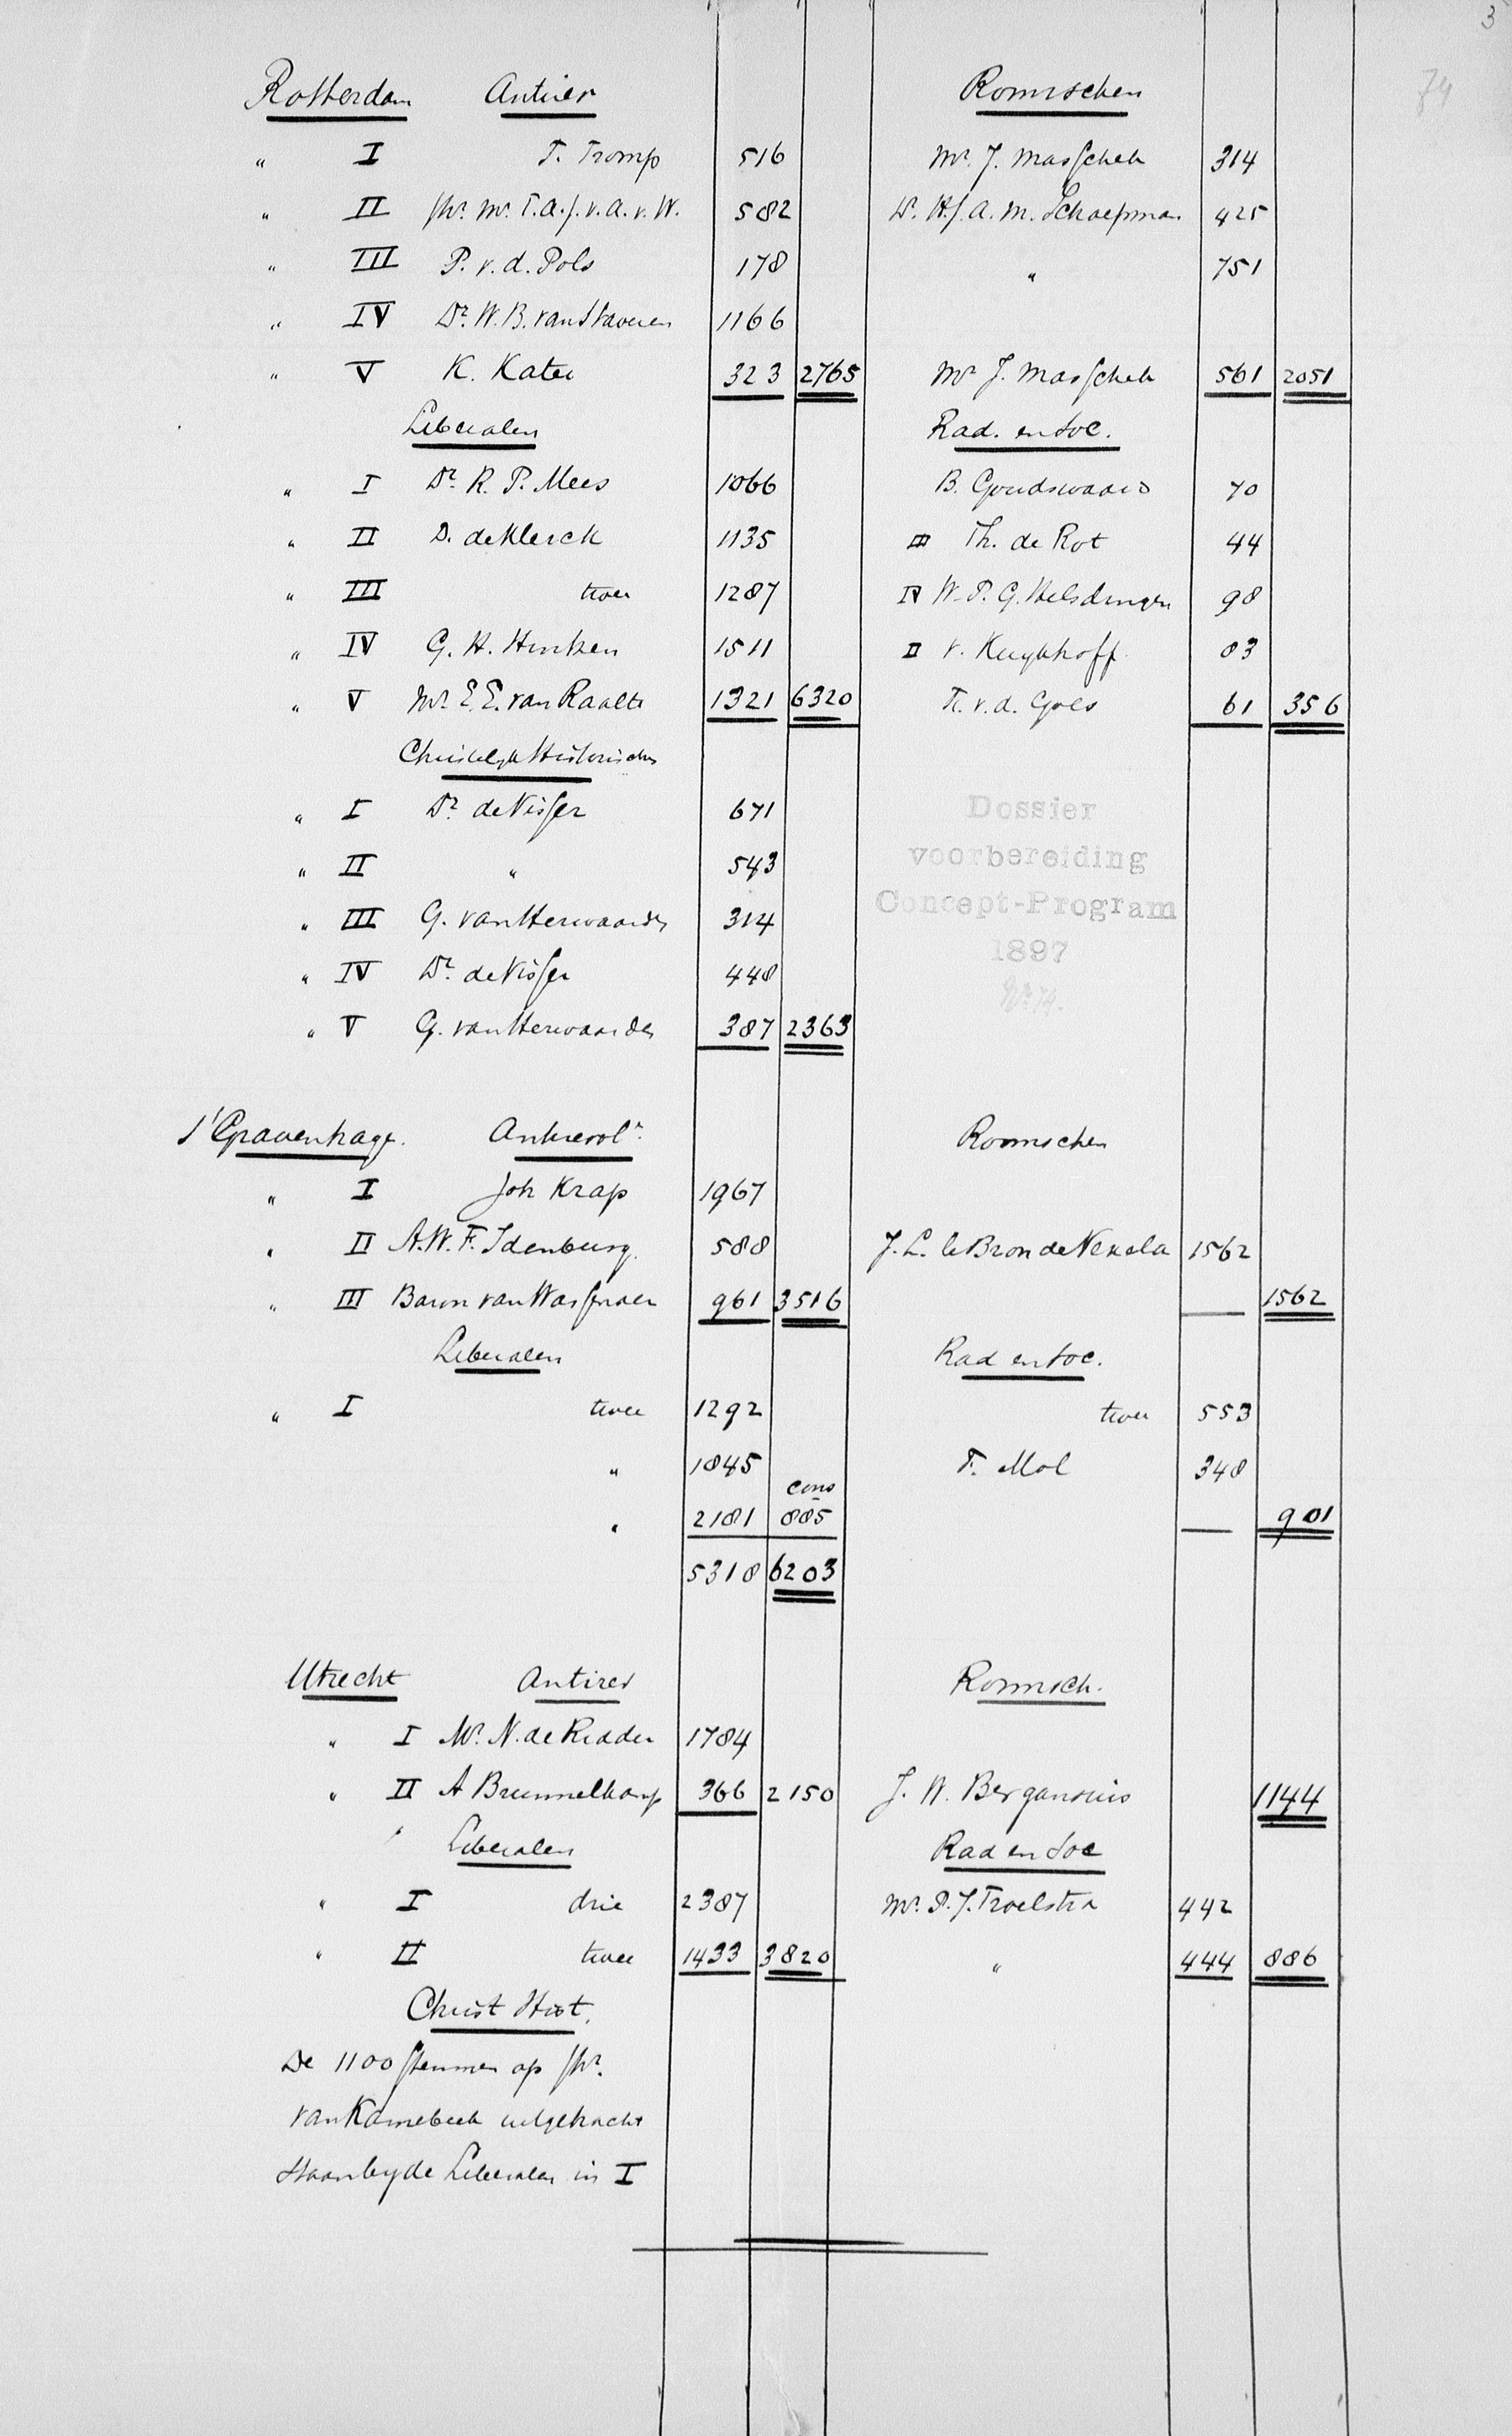 3
74
Rotterdam Antirev Roomschen
" I T. Tromp 516 Mr. J. Masschek 314
" II Jhr. Mr. T. A. J. v. A. v. W. 582 Dr. H. J. A. M. Schaepman 425
" III P. v. d. Pols 178 " 751
" IV Dr. W. B. van Staveren 1166
" V K. Kater 323 2765 Mr J. Masschek 561 2051
Liberalen Rad. en Soc.
" I Dr. R. P. Mees 1066 B. Goudswaard 70
" II D. de Klerck 1135 III Th. de Rot 44
" III twee 1287 IV W. P. G. Helsdingen 98
" IV G. H. Hintzen 1511 II v. Kuykhoff 83
" V Mr. E. E. van Raalte 1321 6320 F. v. d. Goes 61 356
Christelijk Historischen
" I Dr. de Visser 671
" II " 543
" III G. van Herwaarden 314
" IV Dr. de Visser 448
" V G. van Herwaarden 387 2363
Dossier
voorbereiding
Concept-Program
1897
No 74.
s'Gravenhage. Antirevolr. Roomschen
" I Joh Krap 1967
" II A. W. F. Idenburg. 588 J. L. le Bron de Vexela 1562
" III Baron van Wassenaer 961 3516 — 1562
Liberalen Rad en Soc.
" I twee 1292 twee 553
" 1845 F. Mol 348
cons
" 2181 885 — 901
5318 6203
Utrecht Antirev Roomsch.
" I Mr. N. de Ridder 1784
" II A Brummelkamp 366 2150 J. W. Bergansius 1144
Liberalen Rad en Soc
" I drie 2387 Mr. P. J. Troelstra 442
" II twee 1433 3820 " 444 886
Christ Hist.
De 1100 stemmen op Jhr.
van Karnebeek uitgebracht
staan by de Liberalen in I